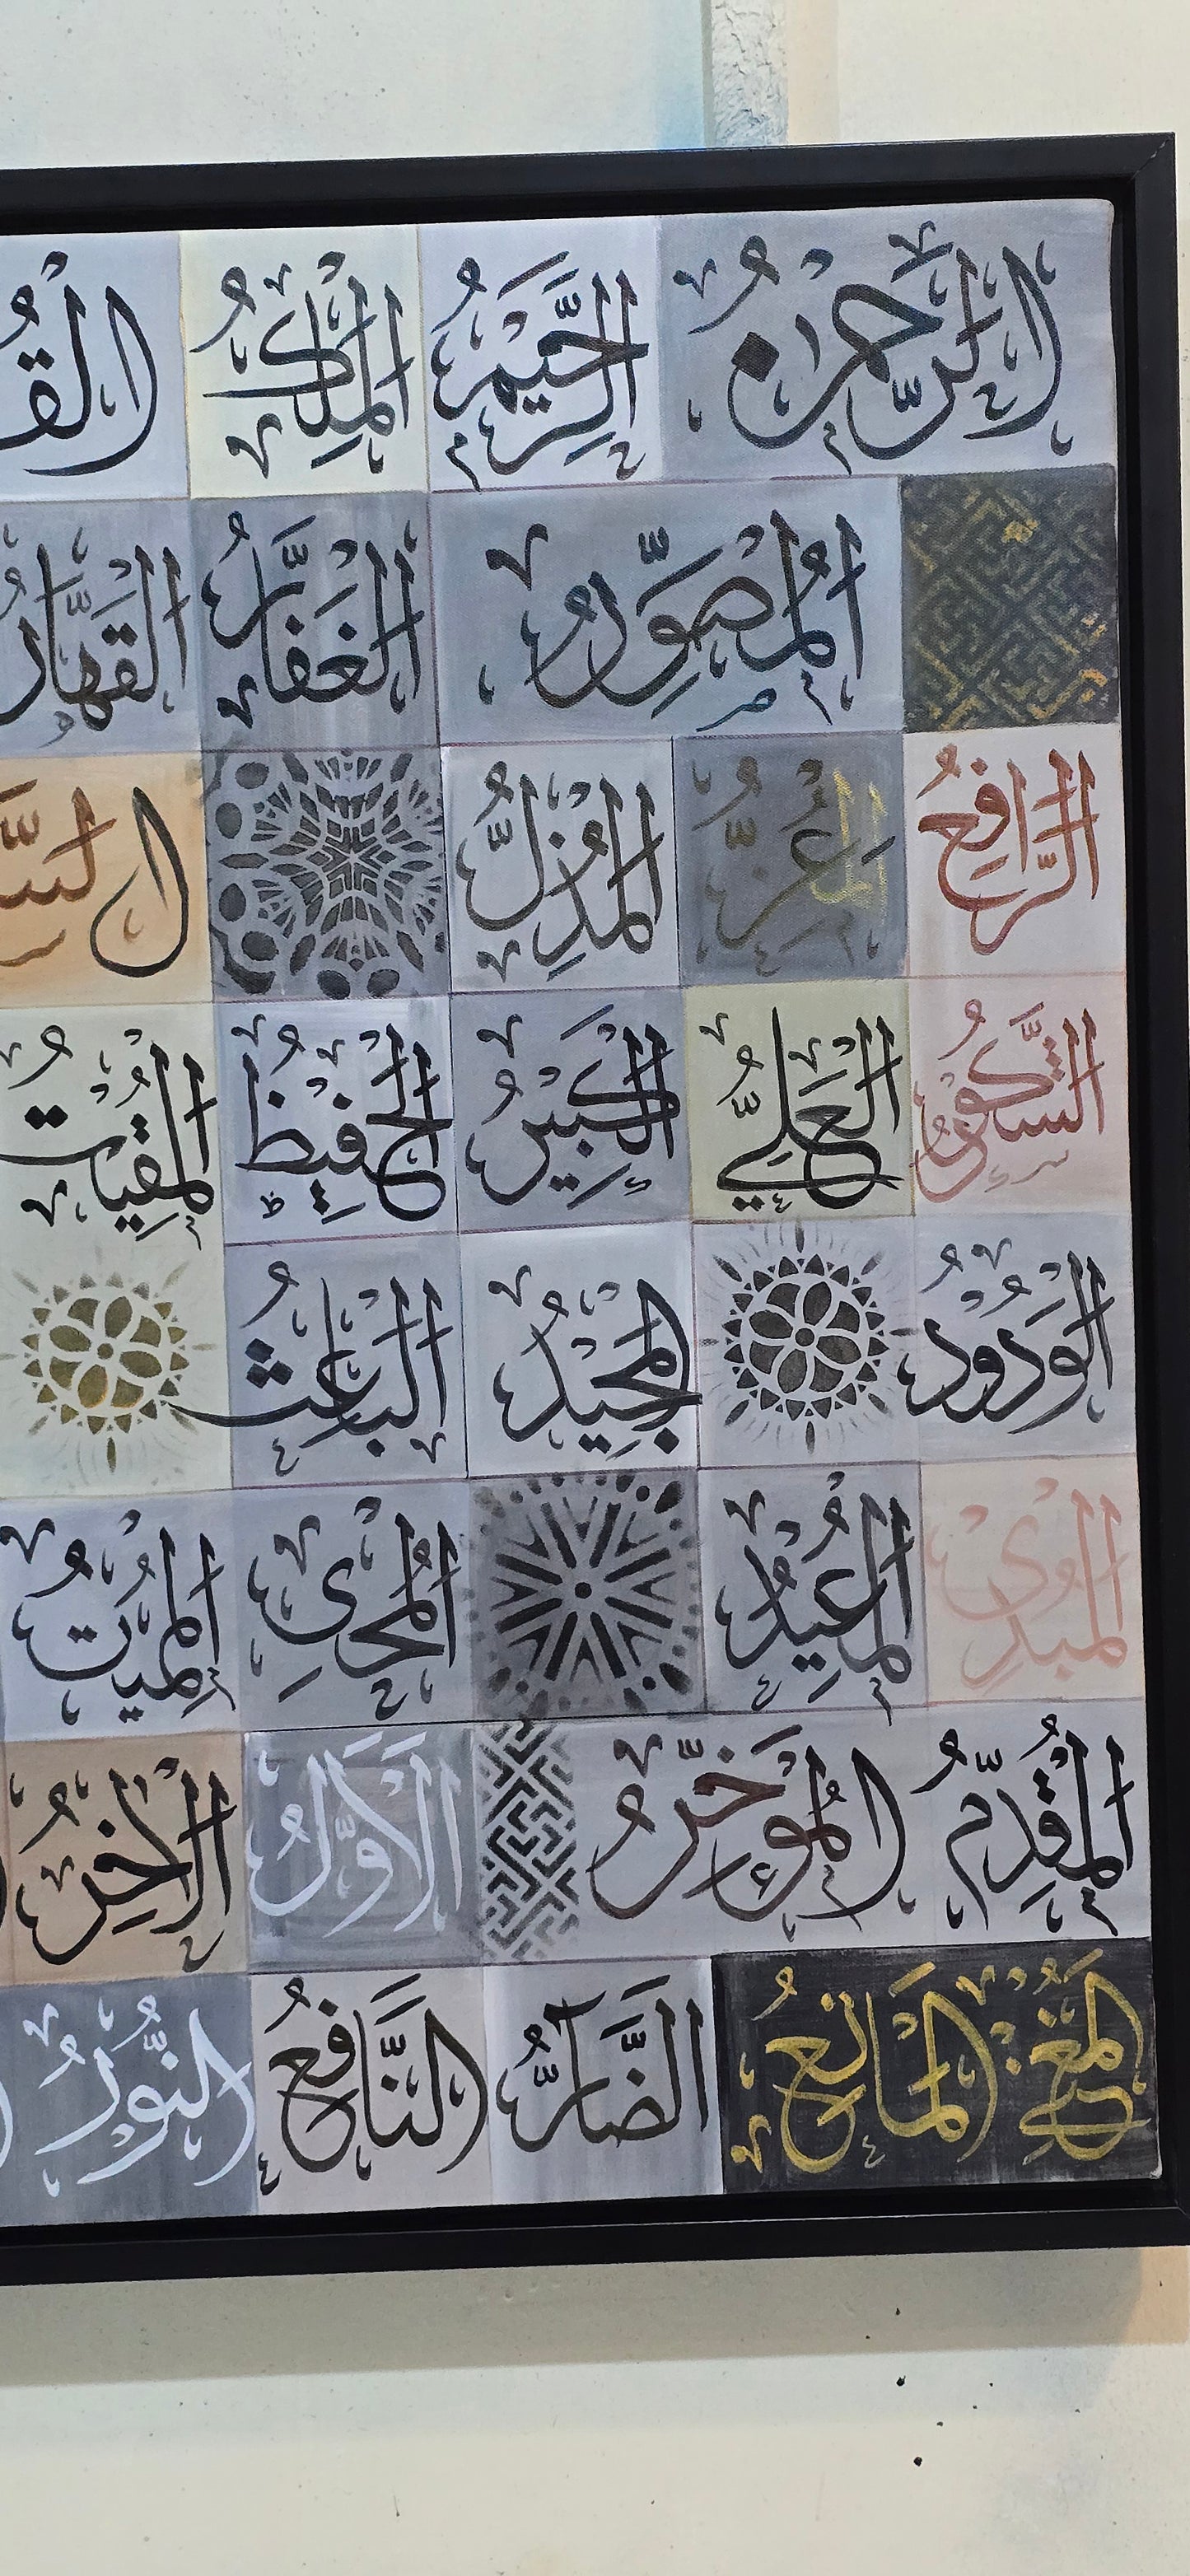 الرَّحْمٰنُ الرَّحِيْمُ الْمَلِكُ
الْمُصَوِّرُ الْغَفَّارُ الْقَهَّارُ
الرَّافِعُ الْمُعِزُّ الْمُذِلُّ
الْعَلِيُّ الْكَبِيْرُ الْحَفِيْظُ الْمُقِيْتُ
الْوَدُوْدُ الْمَجِيْدُ الْبَاعِثُ
الْمُعِيْدُ الْمُحْيِ الْمُمِيْتُ
الْمُقَدِّمُ الْمُؤَخِّرُ الْأَوَّلُ الْآخِرُ
الْمُغْنِي الْمَانِعُ الضَّآرُّ النَّافِعُ النُّوْرُ